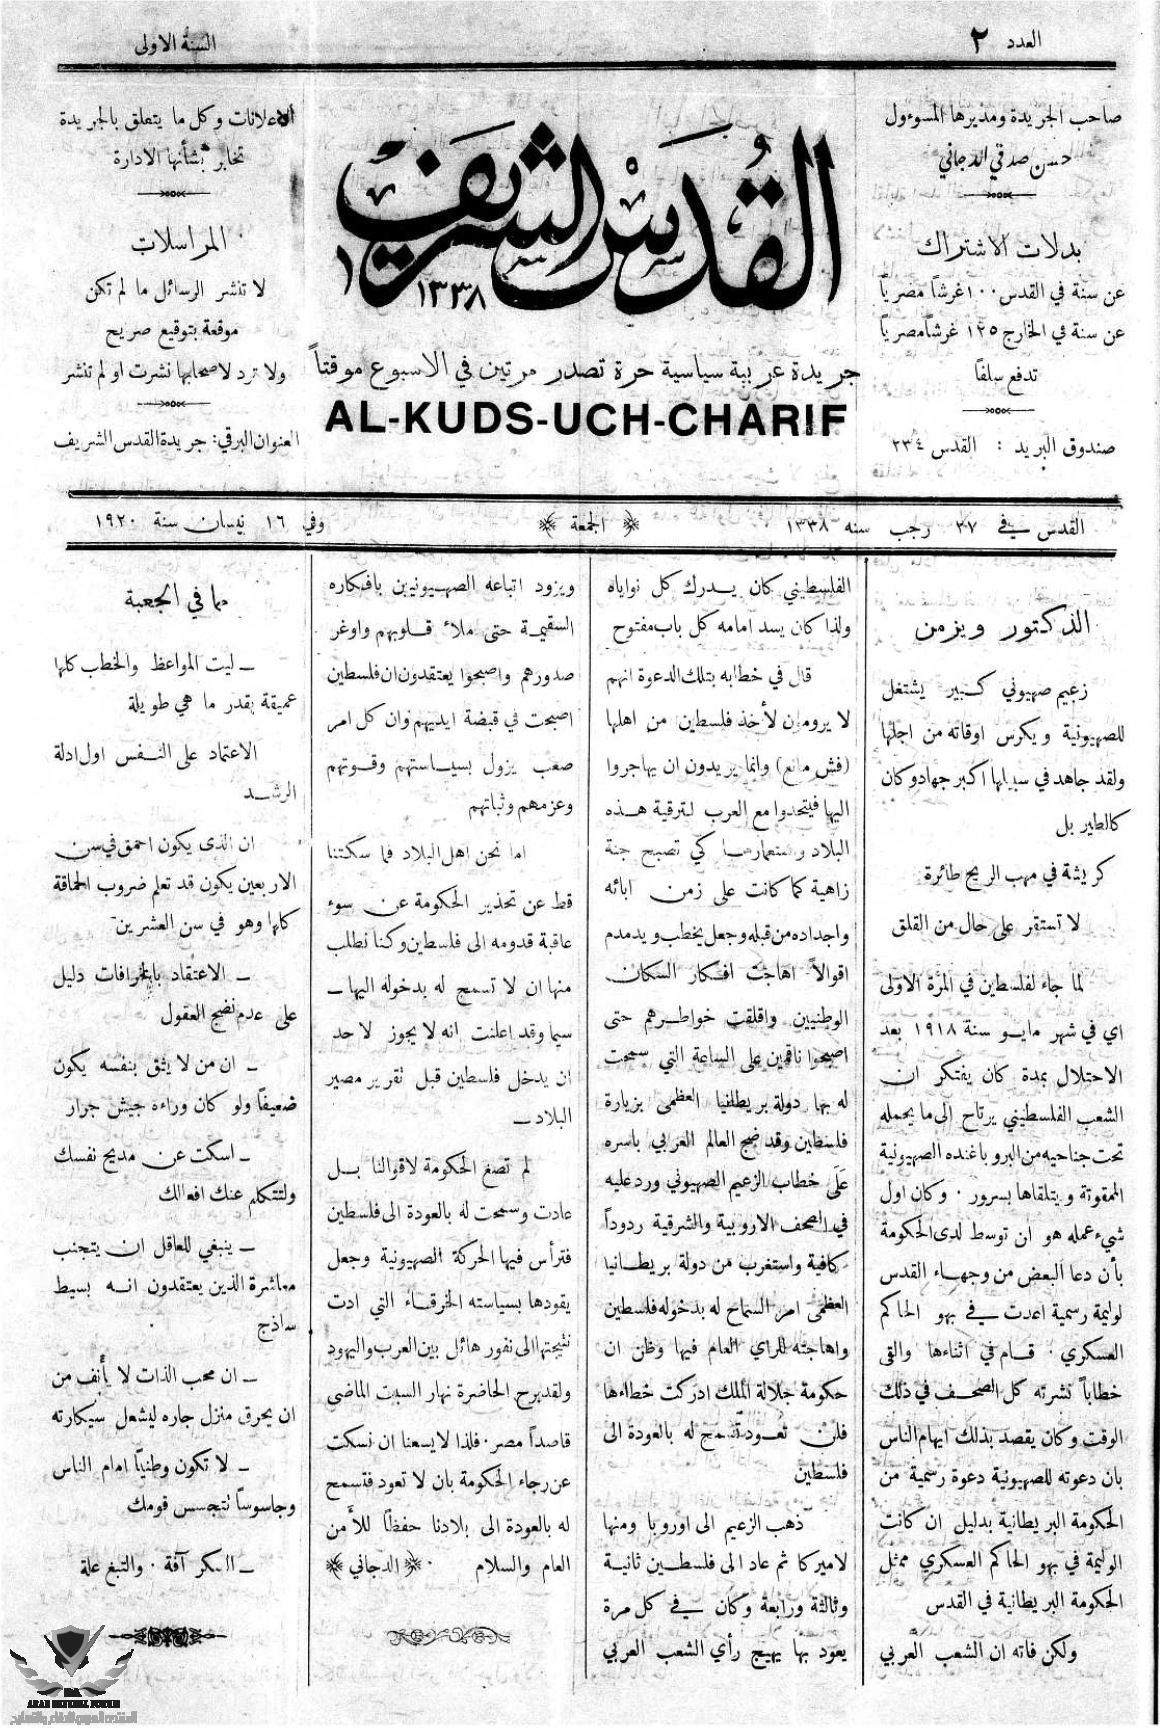 العدد ٢
السنة الاولى
صاحب الجريدة ومديرها المسوءول
حسن صدقي الدجاني
بدلات الاشتراك
عن سنة في القدس ١٠٠ غرشاً مصرياً
عن سنة في الخارج ١٢٥ غرشاً مصرياً
تدفع سلفاً
صندوق البريد : القدس ٢٣٤
القدس الشريف
١٣٣٨
جريدة عربية سياسية حرة تصدر مرتين في الاسبوع موقتاً
AL-KUDS-UCH-CHARIF
الاعلانات وكل ما يتعلق بالجريدة
تخابر بشأنها الادارة
المراسلات
لا تنشر الرسائل ما لم تكن
موقعة بتوقيع صريح
ولا ترد لاصحابها نشرت او لم تنشر
العنوان البرقي: جريدة القدس الشريف
القدس في ٢٧ رجب سنه ١٣٣٨ ﴿ الجمعة ﴾ وفي ١٦ نيسان سنة ١٩٢٠
الدكتور ويزمن
زعيم صهيوني كبير يشتغل
للصهيونية ويكرس اوقاته من اجلها
ولقد جاهد في سبيلها اكبر جهاد وكان
كالطير بل
كريشة في مهب الريح طائرة
لا تستقر على حال من القلق
لما جاء لفلسطين في المرة الاولى
اي في شهر مايو سنة ١٩١٨ بعد
الاحتلال بمدة كان يفتكر ان
الشعب الفلسطيني يرتاح الى ما يحمله
تحت جناحيه من البروباغنده الصهيونية
الممقوتة ويتلقاها بسرور . وكان اول
شيء عمله هو ان توسط لدى الحكومة
بأن دعا البعض من وجهاء القدس
لوليمة رسمية اعدت في بهو الحاكم
العسكري . قام في اثناءها والقى
خطاباً نشرته كل الصحف في ذلك
الوقت وكان يقصد بذلك ايهام الناس
بان دعوته للصهيونية دعوة رسمية من
الحكومة البريطانية بدليل ان كانت
الوليمة في بهو الحاكم العسكري ممثل
الحكومة البريطانية في القدس
ولكن فاته ان الشعب العربي
الفلسطيني كان يدرك كل نواياه
ولذا كان يسد امامه كل باب مفتوح
قال في خطابه بتلك الدعوة انهم
لا يرومون لأخذ فلسطين من اهلها
(فش مانع) وانما يريدون ان يهاجروا
اليها فيتحدوا مع العرب لترقية هذه
البلاد واستعمارها كي تصبح جنة
زاهية كما كانت على زمن ابائه
واجداده من قبله وجعل يخطب ويدمدم
اقوالاً اهاجت افكار السكان
الوطنيين واقلقت خواطرهم حتى
اصبحوا ناقمين على الساعة التي سمحت
له بها دولة بريطانيا العظمى بزيارة
فلسطين وقد ضج العالم العربي باسره
على خطاب الزعيم الصهيوني ورد عليه
في الصحف الاروبية والشرقية ردوداً
كافية واستغرب من دولة بريطانيا
العظمى امر السماح له بدخوله فلسطين
واهاجته للراي العام فيها وظن ان
حكومة جلالة الملك ادركت خطاءها
فلن تعود تسمح له بالعودة الى
فلسطين
ذهب الزعيم الى اوروبا ومنها
لاميركا ثم عاد الى فلسطين ثانية
وثالثة ورابعة وكان في كل مرة
يعود بها يهيج رأي الشعب العربي
ويزود اتباعه الصهيونيين بافكاره
السقيمة حتى ملاء قلوبهم واوغر
صدورهم واصبحوا يعتقدون ان فلسطين
اصبحت في قبضة ايديهم وان كل امر
صعب يزول بسياستهم وقوتهم
وعزمهم وثباتهم
اما نحن اهل البلاد فما سكتنا
قط عن تحذير الحكومة عن سوء
عاقبة قدومه الى فلسطين وكنا نطلب
منها ان لا تسمح له بدخوله اليها —
سيما وقد اعلنت انه لا يجوز لاحد
ان يدخل فلسطين قبل تقرير مصير
البلاد —
لم تصغ الحكومة لاقوالنا بل
عادت وسمحت له بالعودة الى فلسطين
فترأس فيها الحركة الصهيونية وجعل
يقودها بسياسته الخرقاء التي ادت
نتيجتها الى نفور هائل بين العرب واليهود
ولقد برح الحاضرة نهار السبت الماضي
قاصداً مصر . فلذا لا يسعنا ان نسكت
عن رجاء الحكومة بان لا تعود فتسمح
له بالعودة الى بلادنا حفظاً للأمن
العام والسلام . ﴿ الدجاني ﴾
ما في الجعبة
— ليت المواعظ والخطب كلها
عميقة بقدر ما هي طويلة
الاعتماد على النفس اول ادلة
الرشد
ان الذى يكون احمق في سن
الاربعين يكون قد تعلم ضروب الحماقة
كلها وهو في سن العشرين
— الاعتقاد بالخرافات دليل
على عدم نضج العقول
— ان من لا يثق بنفسه يكون
ضعيفاً ولو كان وراءه جيش جرار
— اسكت عن مديح نفسك
ولتتكلم عنك افعالك
— ينبغي للعاقل ان يتجنب
معاشرة الذين يعتقدون انه بسيط
ساذج
— ان محب الذات لا يأنف من
ان يحرق منزل جاره ليشعل سيكارته
— لا تكون وطنياً امام الناس
وجاسوساً تتجسس قومك
— السكر آفة . والتبغ علة
ARAB DEFENSE FORUM
المنتدى العربي للدفاع والتسليح